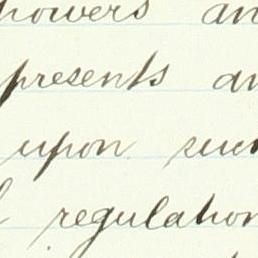 powers an
presents an
upon such
regulation